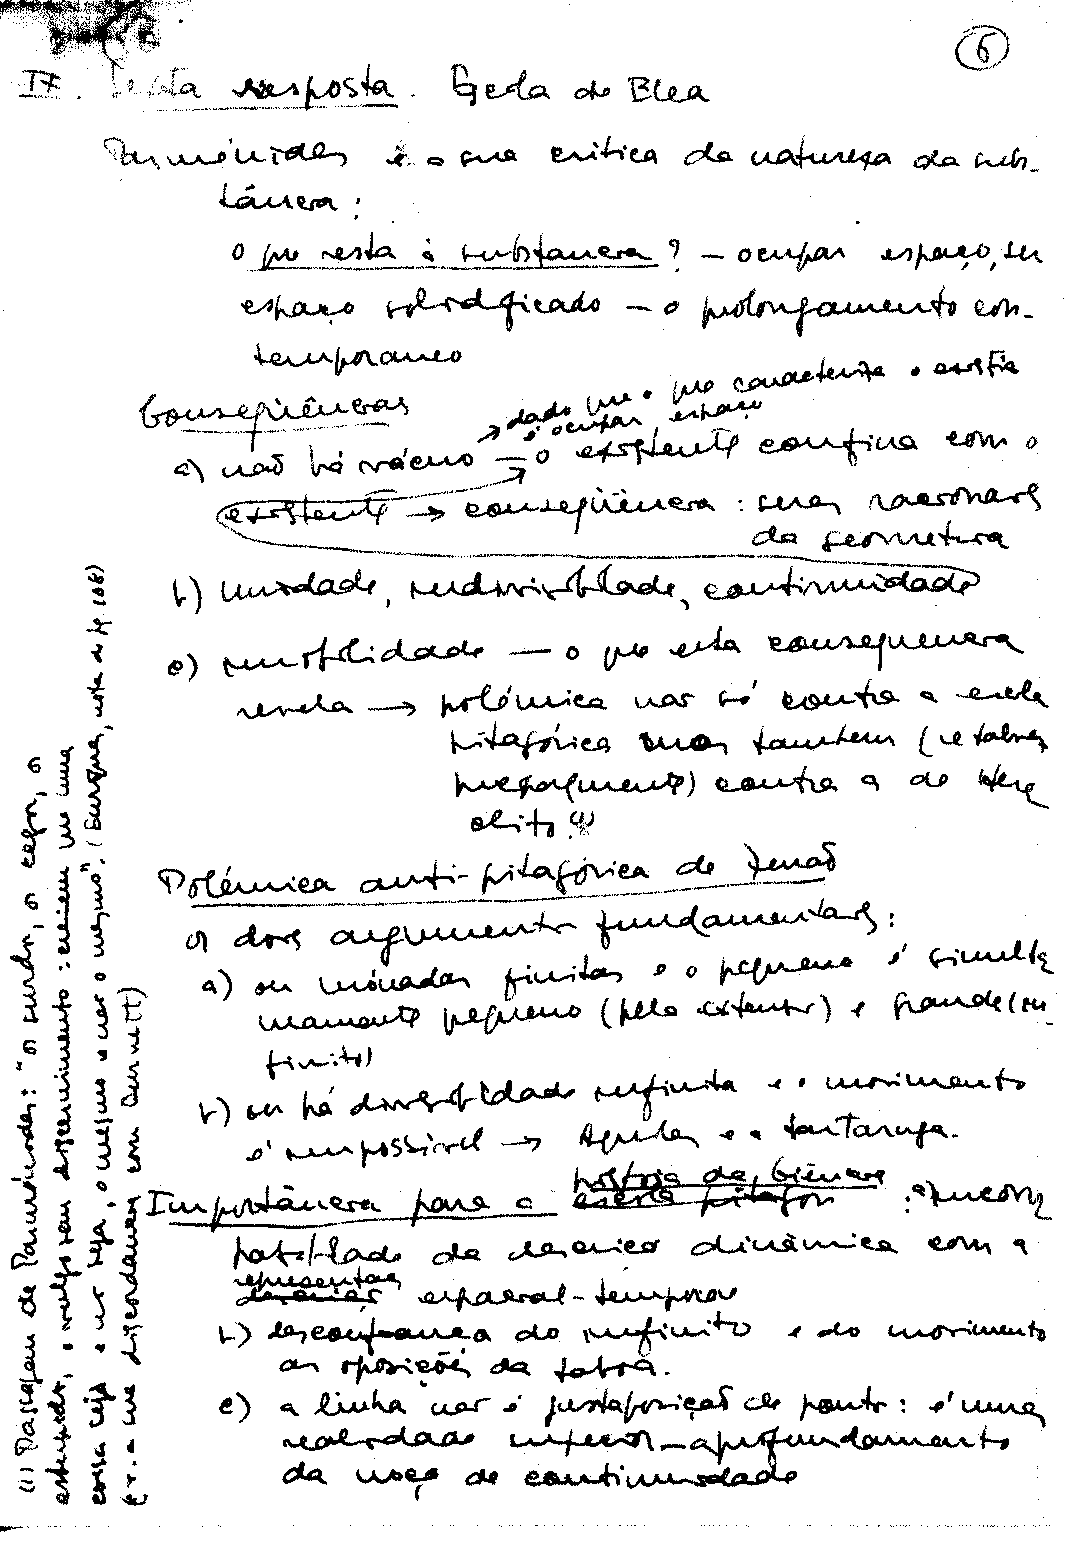 6
IV. Sexta resposta. Escola de Elea
Parménides e a sua crítica da natureza da subs-
tância:
O que resta à substância? — ocupar espaço, ser
espaço solidificado — o prolongamento con-
temporaneo
Consequências
→ dado que o que caracteriza o existir
é ocupar espaço
a) não há vácuo — o existente confina com o
existente → conseqüência: seres racionais
da geometria
b) unidade, indivisibilidade, continuidade
c) imobilidade — o que esta consequencia
revela → polémica não só contra a escola
pitagórica mas tambem (e talvez
) contra a de Hera
clito (1)
Polémica anti-pitagórica de Zenão
os dois argumentos fundamentais:
a) ou mónadas finitas e o pequeno é simulta
neamente pequeno (pelo extenso) e grande (in-
finito)
b) ou há divisibilidade infinita e o movimento
é impossível → Aquiles e a tartaruga.
Importância para a história da ciência : a) incom
patiblidade da dinâmica com a
representação espacial-temporal
b) desconfiança do infinito e do movimento
as oposições da taboa.
c) a linha não é justaposição de pontos: é uma
realidade — aprofundamento
da noção de continuidade
(1) Passagem de Parménides: "os surdos, os cegos, os
estupidos, o vulgo sem discernimento: creiem que uma
coisa seja e não seja, o mesmo e não o mesmo". (, nota da pg 108)
(v. a sua discordancia com Burnett)